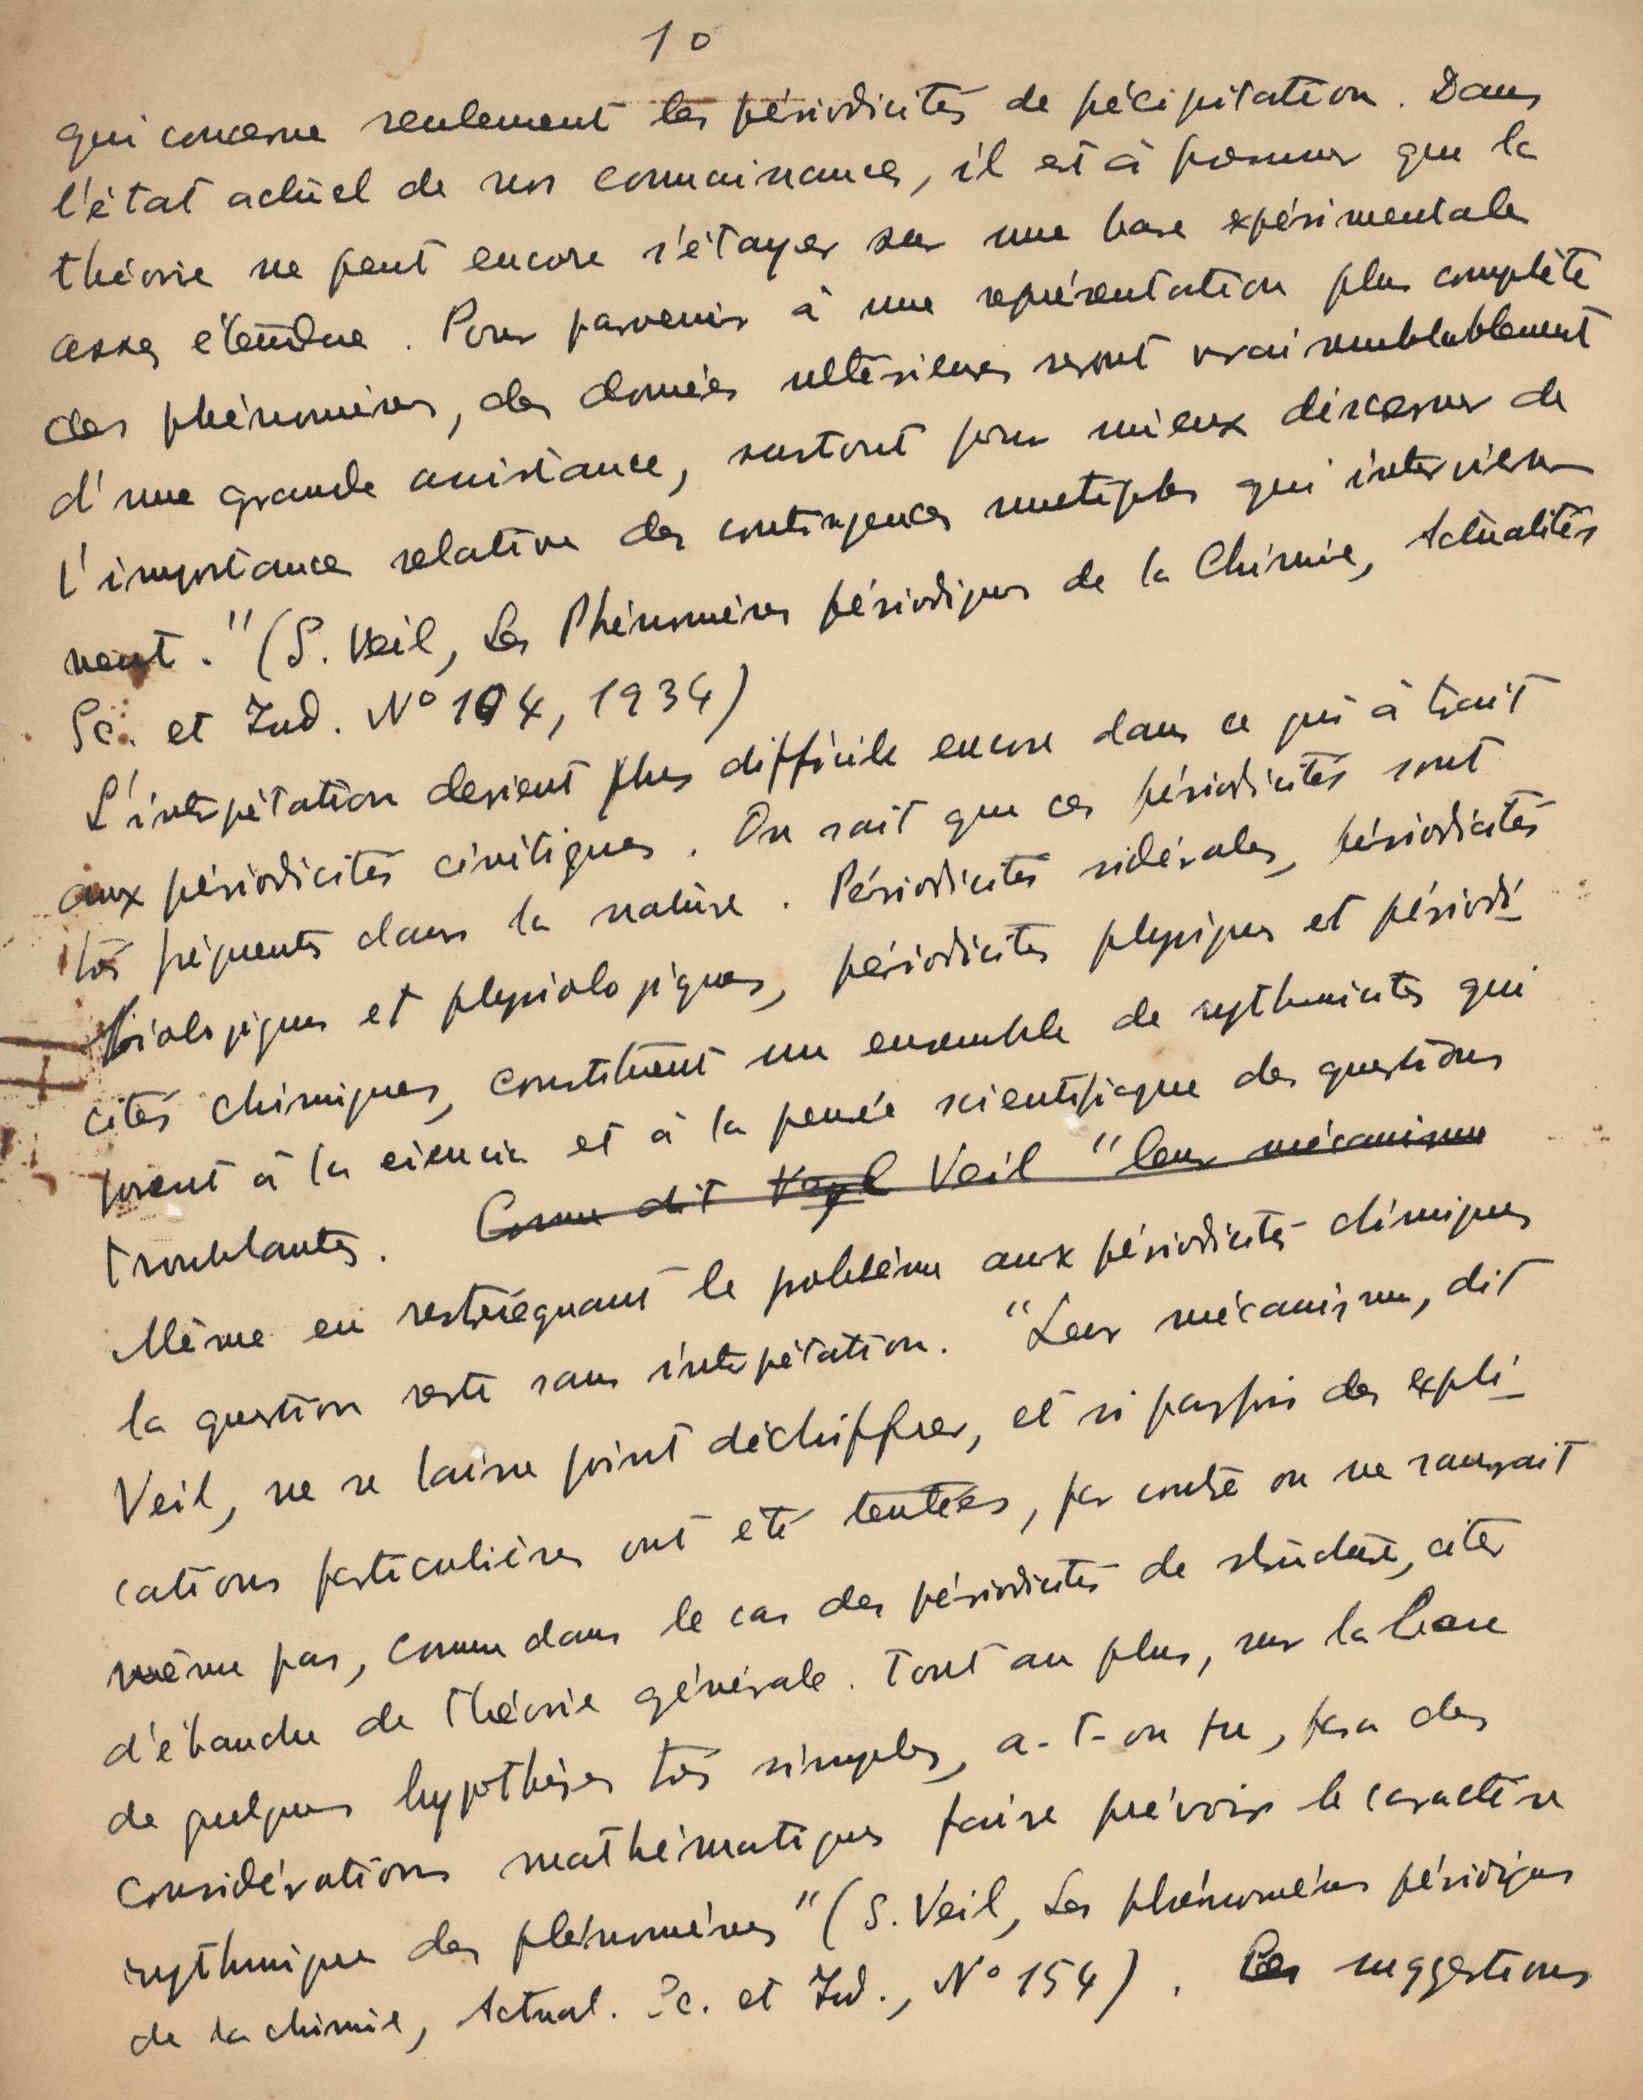 10
qui concerne seulement les périodicités de précipitation. Dans
l'état actuel de nos connaissances, il est à présumer que la
théorie ne peut encore s'étayer sur une base expérimentale
assez étendue. Pour parvenir à une représentation plus complète
des phénomènes, des données ultérieures seront vraisemblablement
d'une grande assistance, surtout pour mieux discerner de
l'importance relative des contingences multiples qui intervien-
nent." (S. Veil, Les Phénomènes périodiques de la Chimie, Actualités
Sc. et Ind. No 104, 1934)
L'interprétation devient plus difficile encore dans ce qui à trait
aux périodicités cinétiques. On sait que ces périodicités sont
très fréquents dans la nature. Périodicités sidérales, périodicités
biologiques et physiologiques, périodicités physiques et périodi-
cités chimiques, constituent un ensemble de rythmicités qui
posent à la science et à la pensée scientifique des questions
troublantes. Comme dit Veil "leur mécanisme
Même en restreignant le problème aux périodicités chimiques
la question reste sans interprétation. "Leur mécanisme, dit
Veil, ne se laisse point déchiffrer, et si parfois des expli-
cations particulières ont été tentées, par contre on ne saurait
même pas, comme dans le cas des périodicités de structure, citer
d'ébauche de théorie générale. Tout au plus, sur la base
de quelques hypothèses très simples, a-t-on pu, par des
considérations mathématiques faire prévoir le caractère
rythmique des phénomènes" (S. Veil, Les phénomènes périodiques
de la chimie, Actual. Sc. et Ind., No 154). Les suggestions